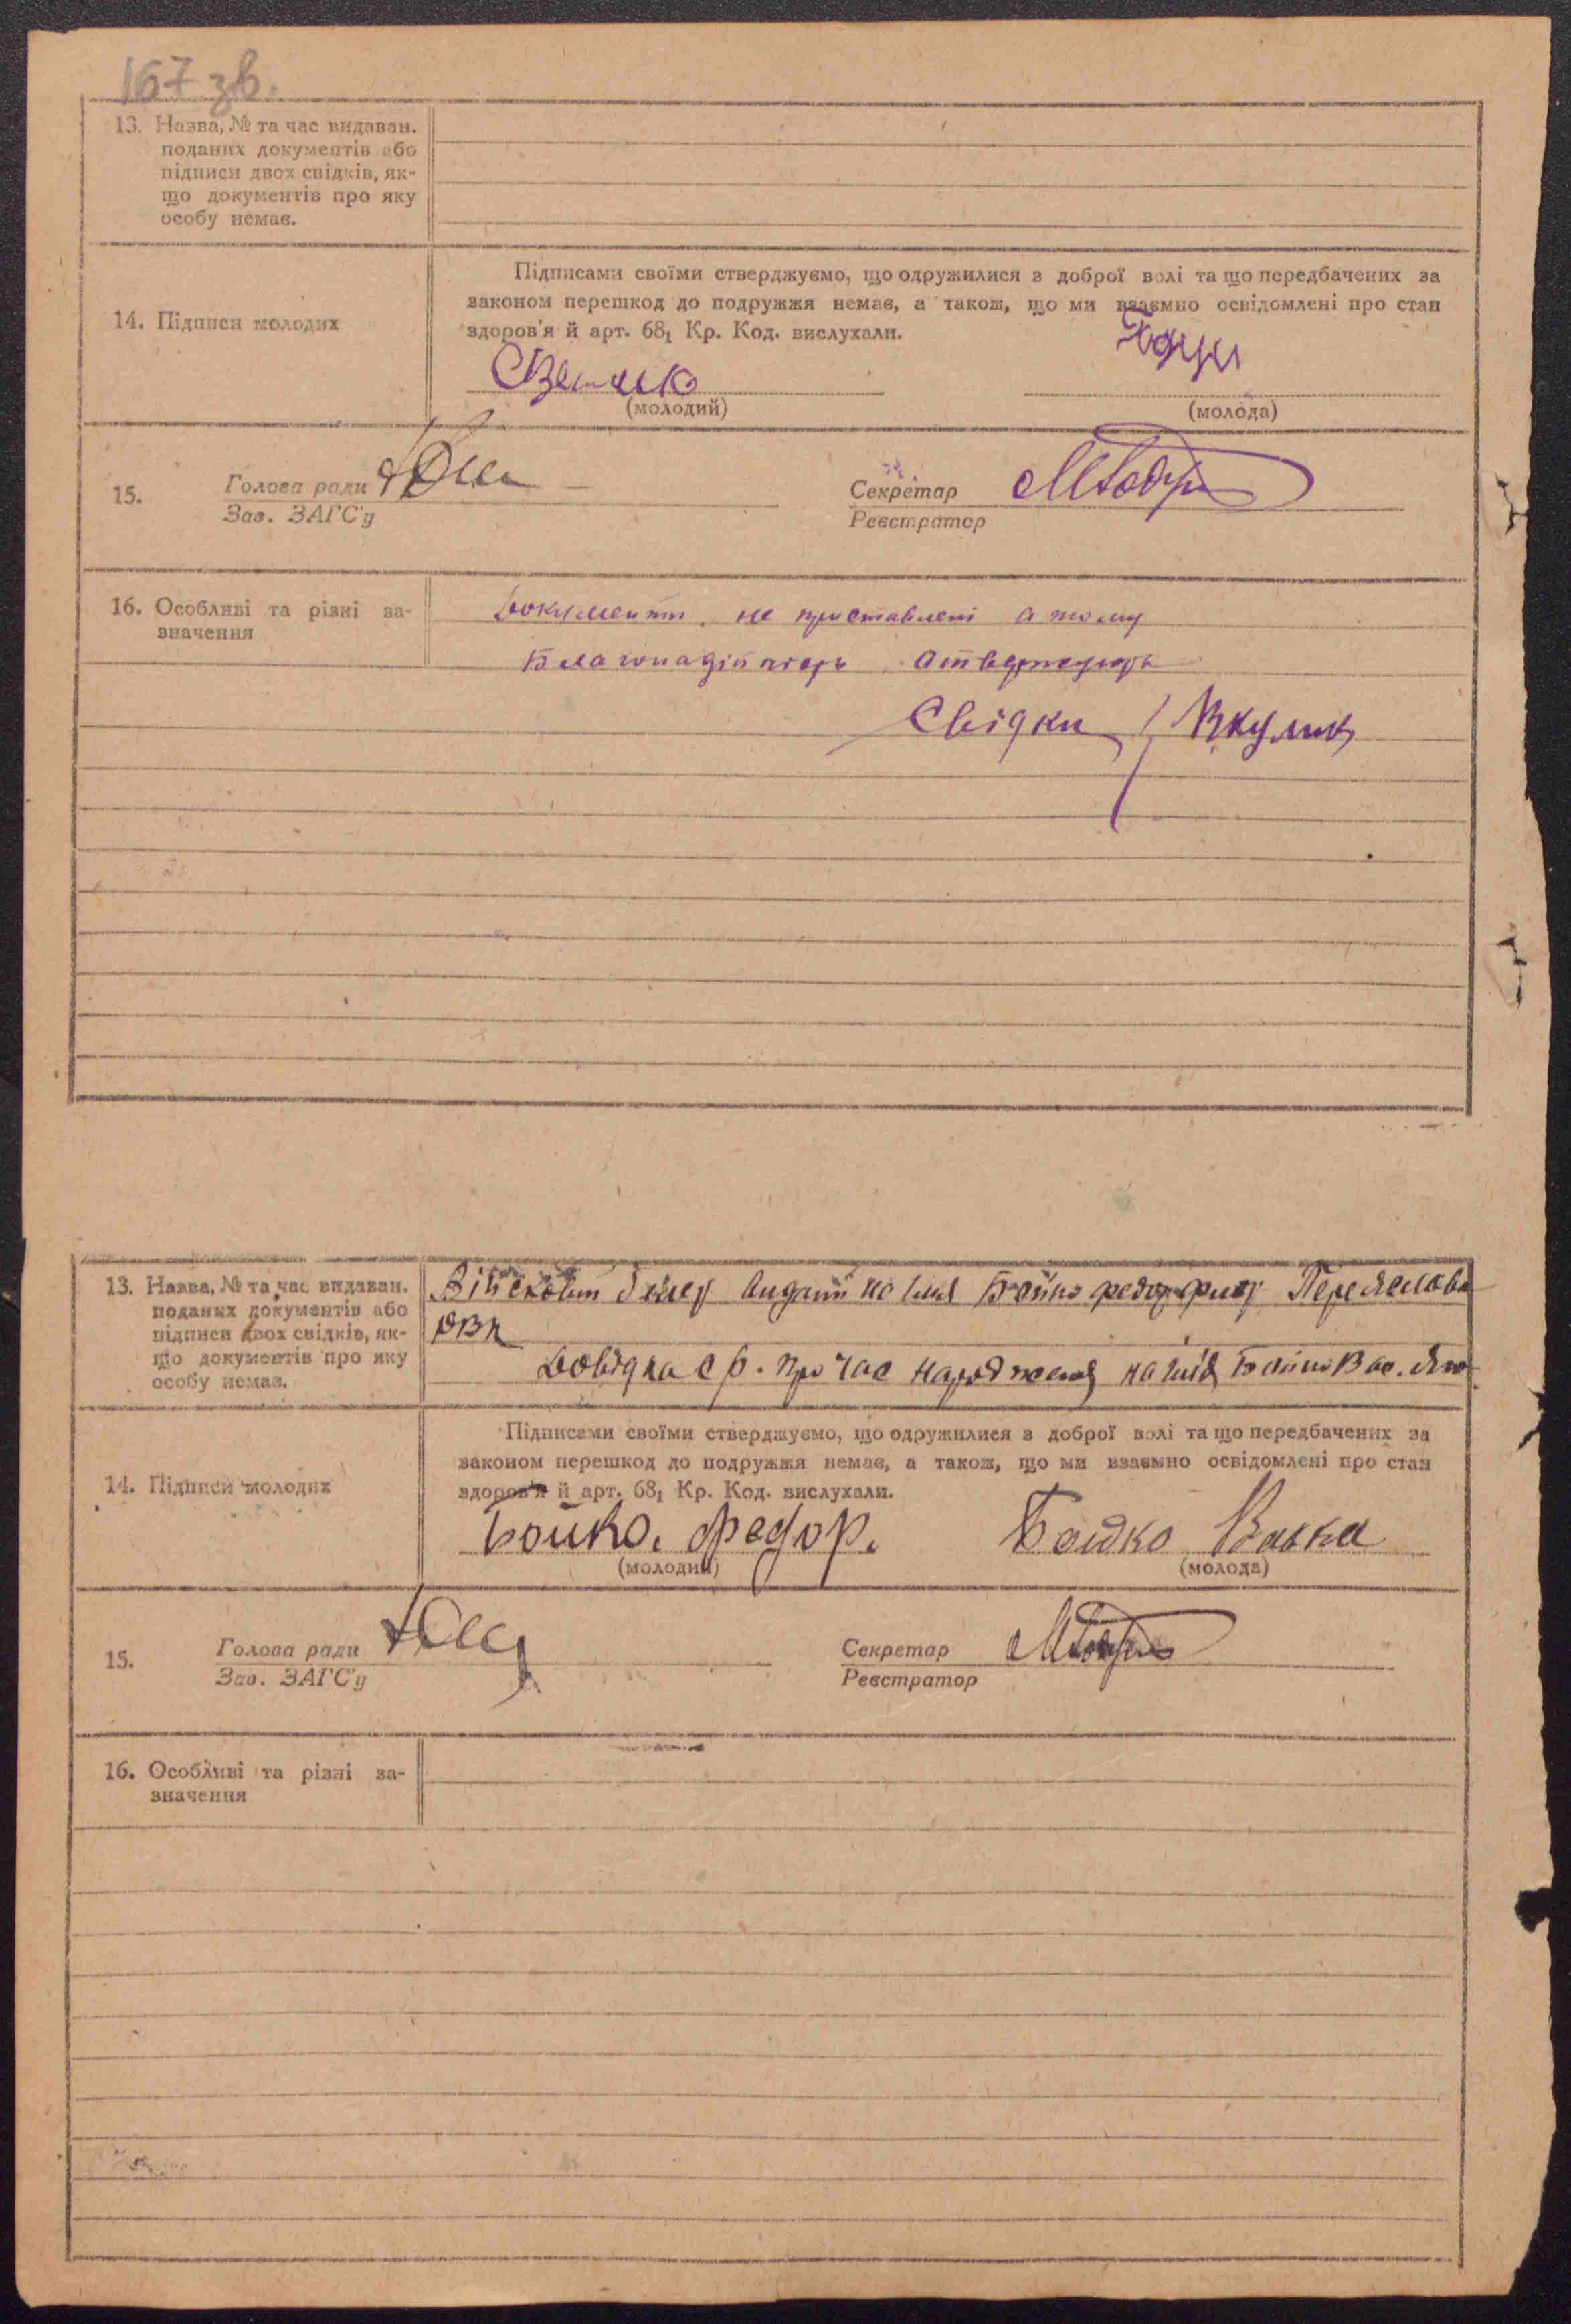 167 зв.
13. Назва, № та час видаван.
поданих документів або
підписи двох свідків, як-
що документів про яку
особу немає.
14. Підписи молодих
Підписами своїми стверджуємо, що одружилися з доброї волі та що передбачених за
законом перешкод до подружжя немає, а також, що ми взаємно освідомлені про стан
здоров'я й арт. 68₁ Кр. Код. вислухали.
(молодий)
(молода)
15.
Голова ради
Зав. ЗАГС'у
Секретар
Реєстратор
16. Особливі та різні за-
значення
Документи не приставлені а тому
Свідки Вкулик
13. Назва, № та час видаван.
поданих документів або
підписи двох свідків, як-
що документів про яку
особу немає.
Військовий білет виданий на імя Бойко Переяслови
РВК
Довідка с р. про час народження на імя Бойко Вас.
14. Підписи молодих
Підписами своїми стверджуємо, що одружилися з доброї волі та що передбачених за
законом перешкод до подружжя немає, а також, що ми взаємно освідомлені про стан
здоров'я й арт. 68₁ Кр. Код. вислухали.
Бойко. Федор. Бойко
(молодий)
(молода)
15.
Голова ради
Зав. ЗАГС'у
Секретар
Реєстратор
16. Особливі та різні за-
значення